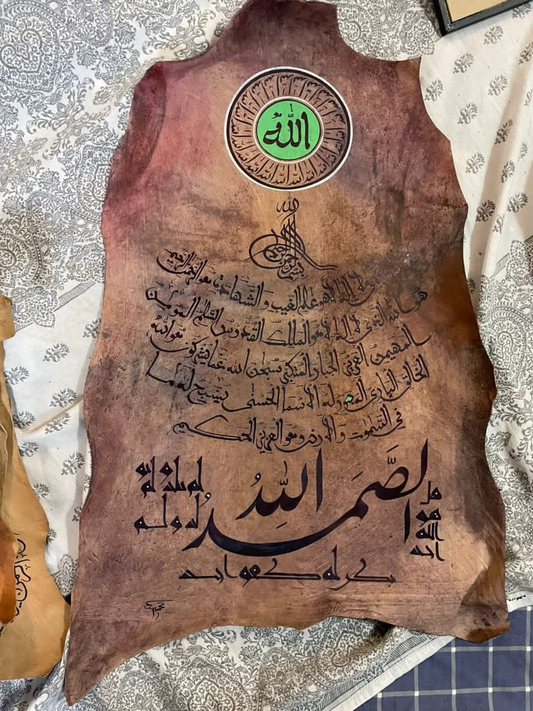 الله
الله
بسم الله الرحمن الرحيم
هو الله الذي لا اله الا هو عالم الغيب و الشهادة هو الرحمن الرحيم
هو الله الذي لا اله الا هو الملك القدوس السلام المؤمن
المهيمن العزيز الجبار المتكبر سبحن الله عما يشركون هو الله
الخالق البارئ المصور له الاسما الحسنى يسبح له ما
في السموت والارض وهو العزيز الحكيم
قل
هو
الله
احد
اللهُ الصَّمَدُ
لم يلد و لم
يولد و لم
يكن له كفوا احد